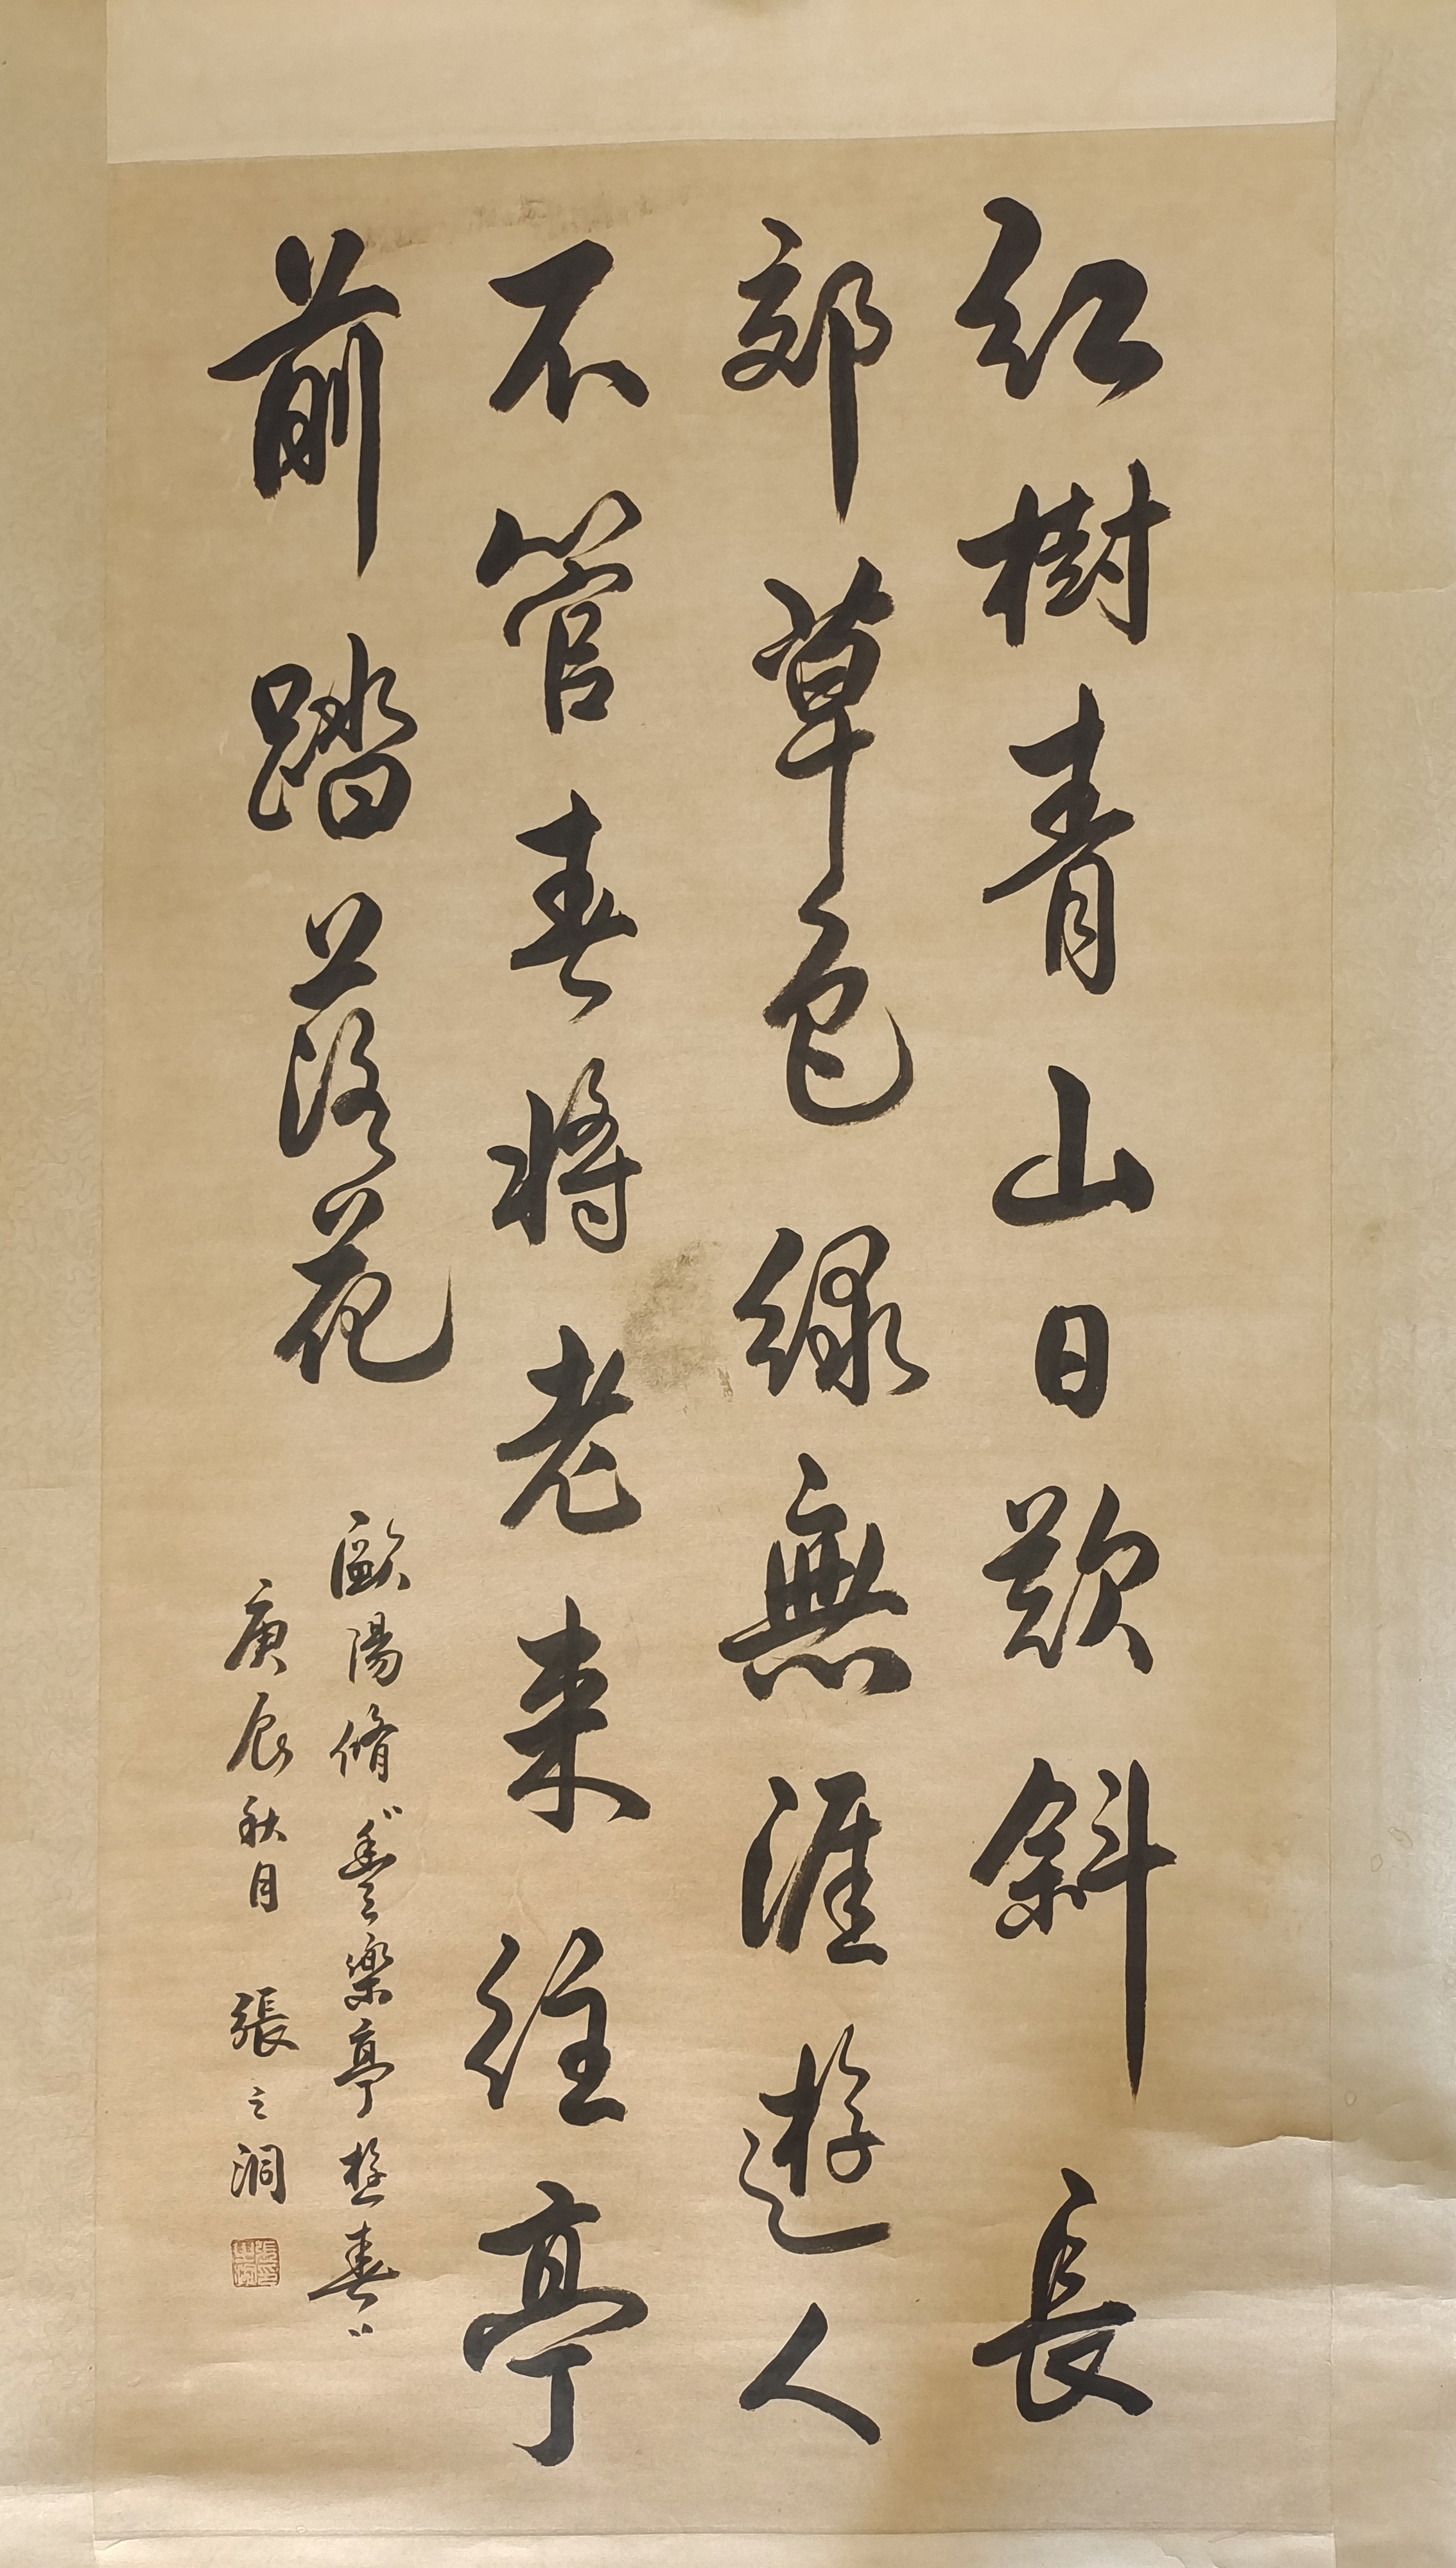 红樹青山日欲斜長
郊草色緑無涯遊人
不管春將老来往亭
前踏落花
歐陽脩“豐樂亭遊春”
庚辰秋月 張之洞
張之洞印